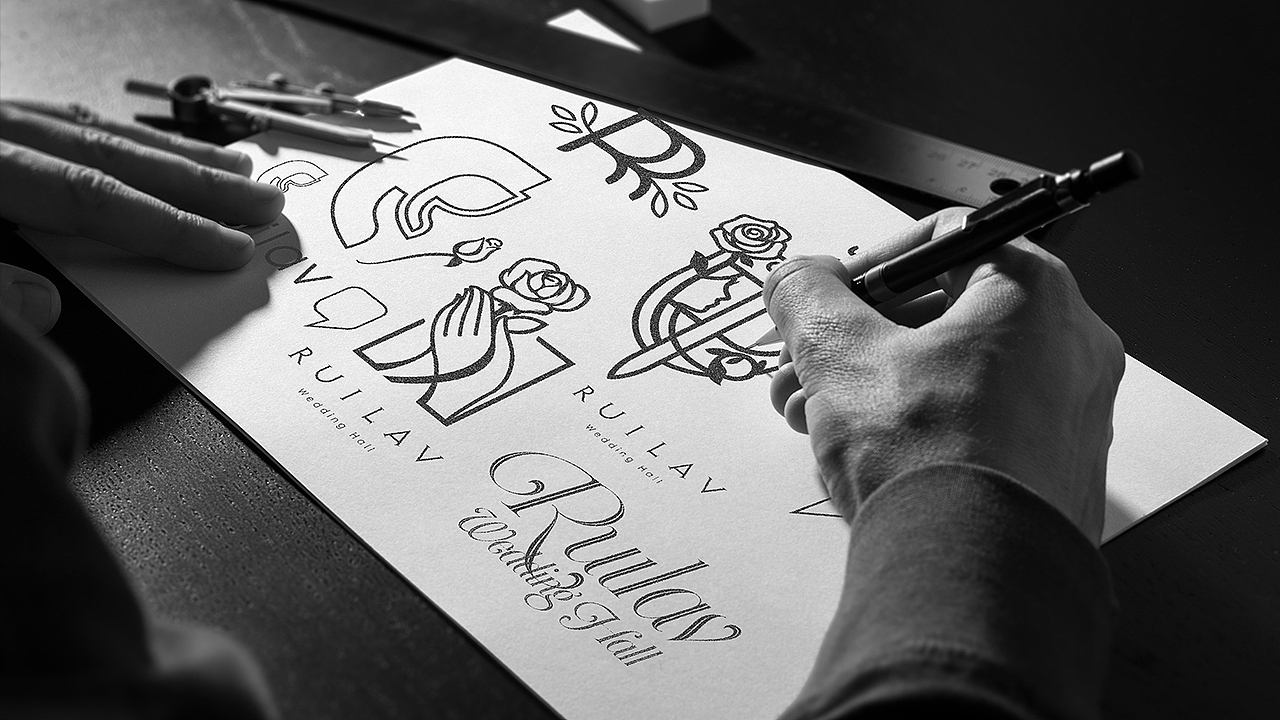 R
av
RUILAV
Wedding Hall
RUILAV
Wedding Hall
Ruilav
Wedding Hall